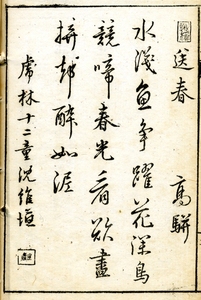 送春　高駢
水淺魚争躍花深鳥
競啼春光看欲盡
拚却醉如泥
虎林十二童沈維垣